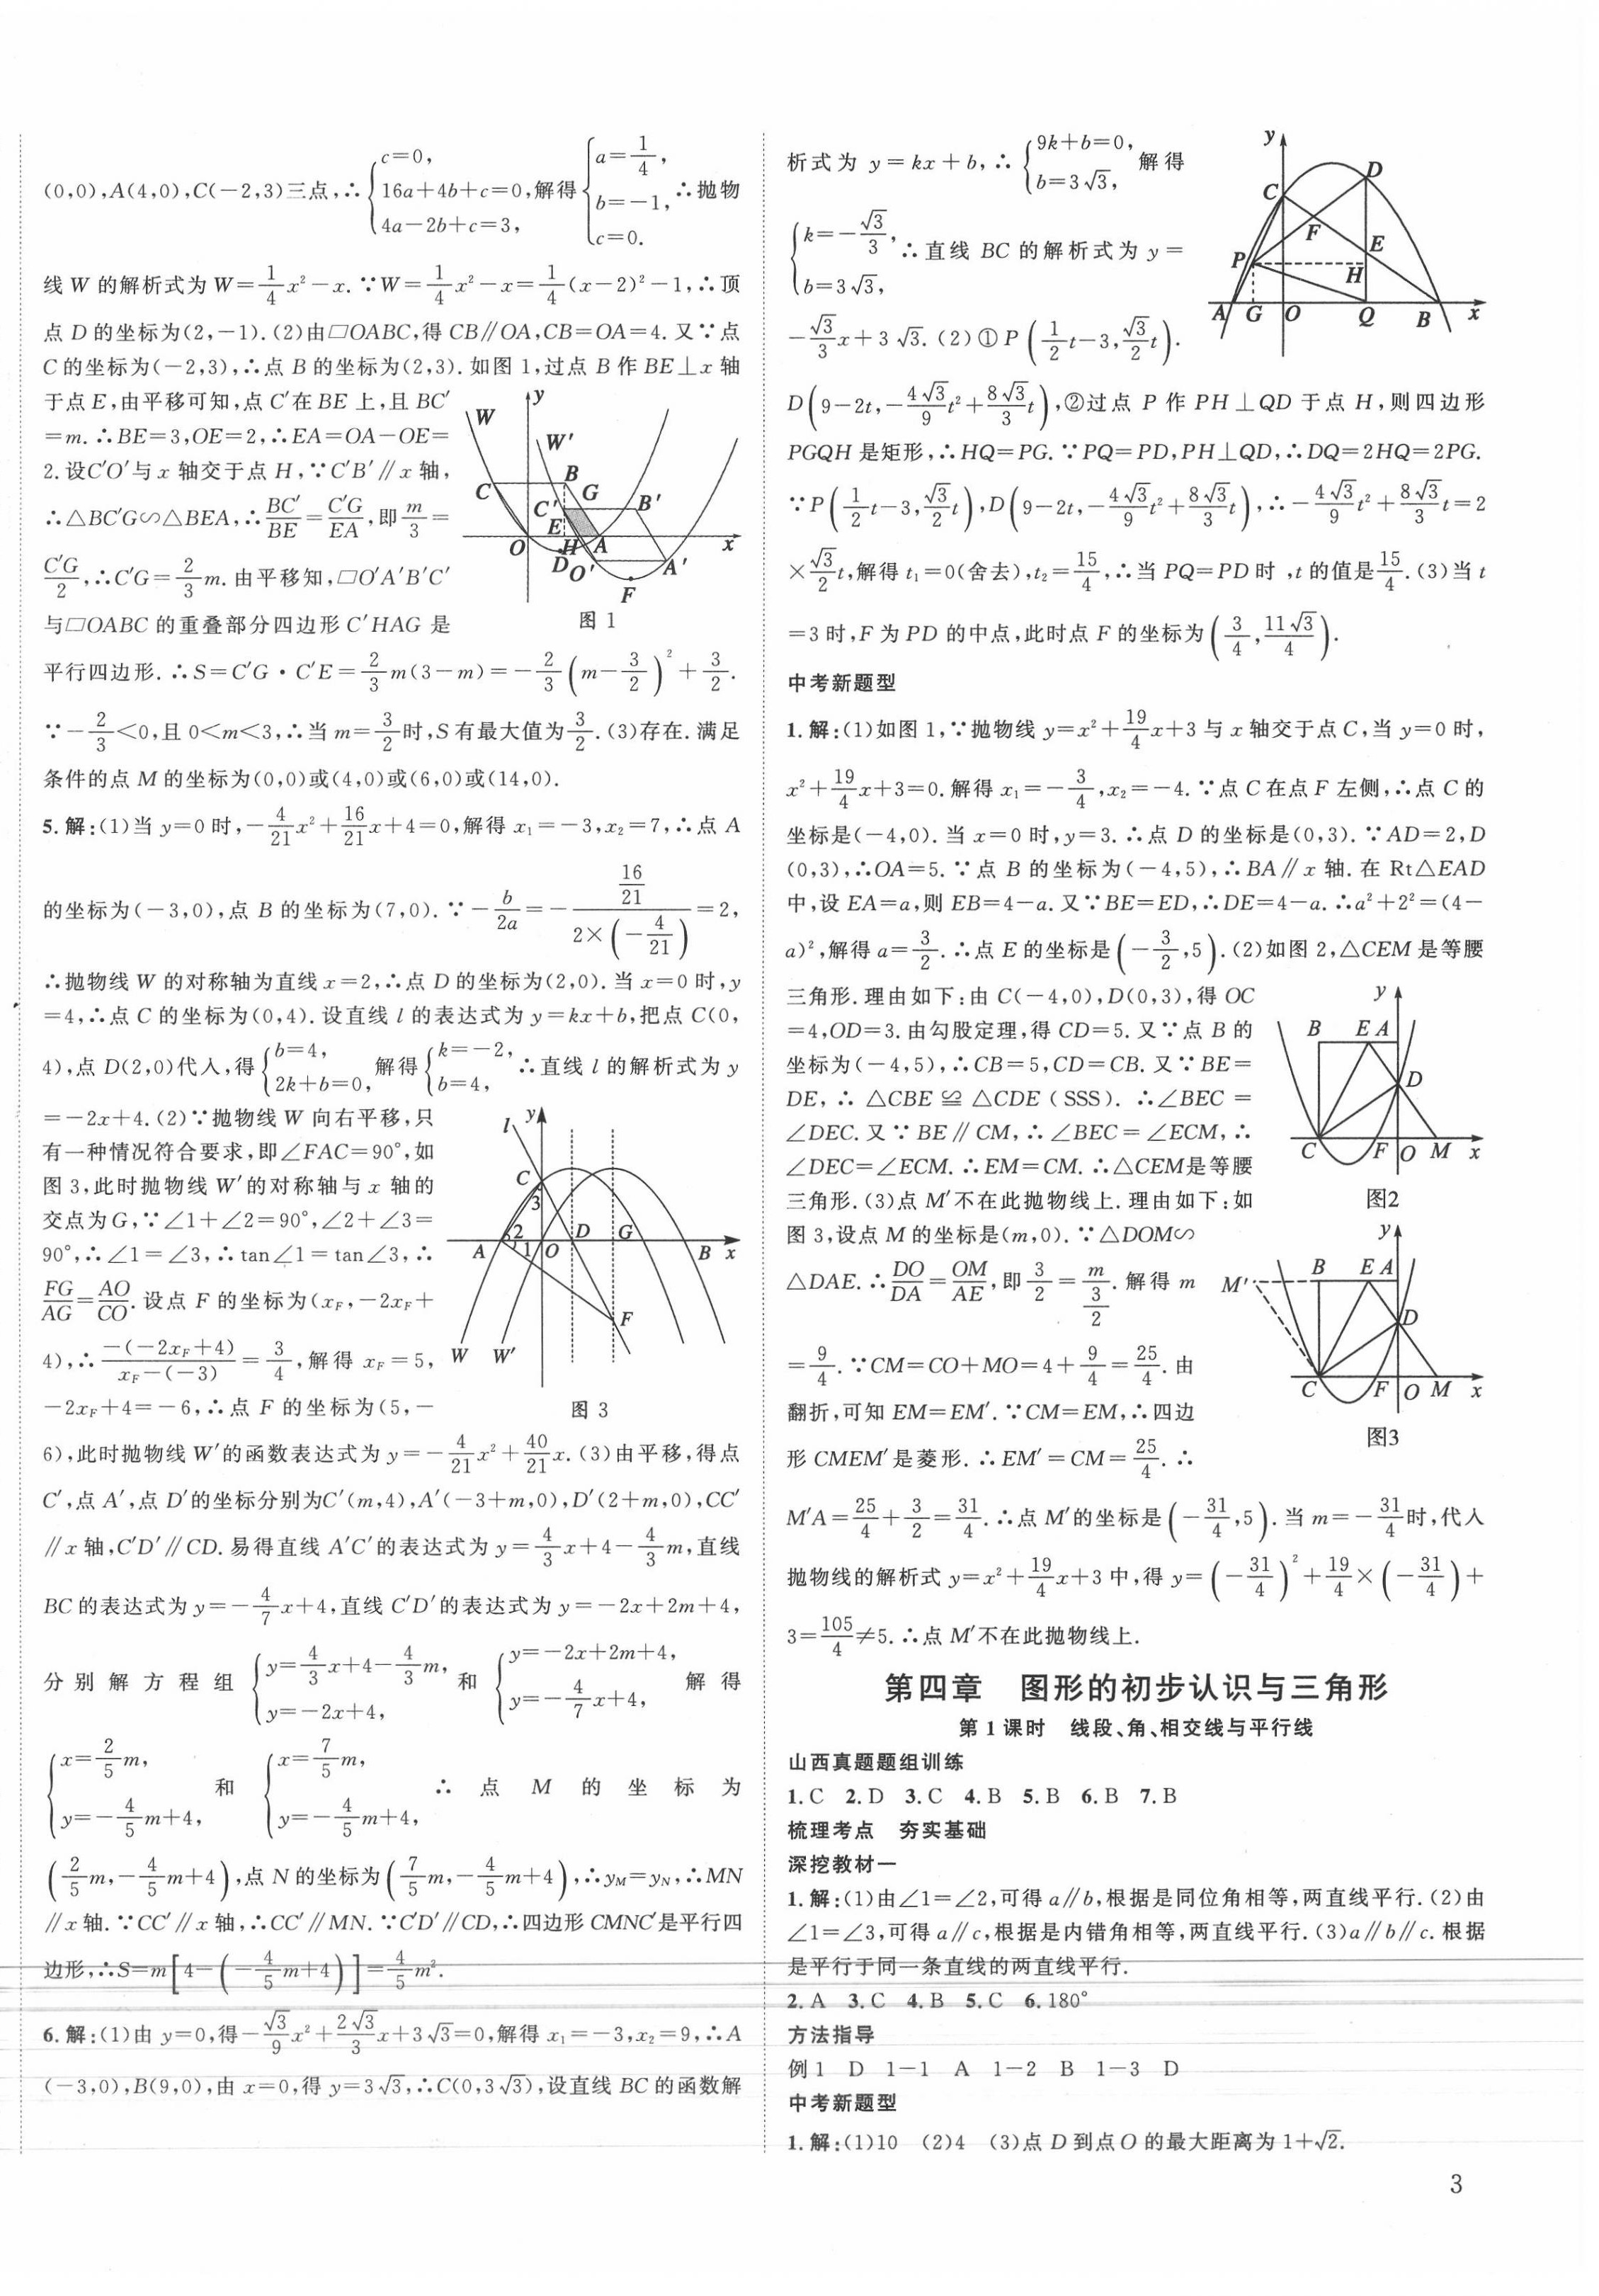 (0,0),A(4,0),C(−2,3)三点,∴{c=0, 16a+4b+c=0, 4a−2b+c=3, 解得{a=1/4, b=−1, c=0. ∴抛物
线 W 的解析式为W=1/4x²−x.∵W=1/4x²−x=1/4(x−2)²−1,∴顶
点 D 的坐标为(2,−1).(2)由□OABC,得 CB∥OA,CB=OA=4.又∵点
C 的坐标为(−2,3),∴点 B 的坐标为(2,3).如图 1,过点 B 作 BE⊥x 轴
于点 E,由平移可知,点 C′在 BE 上,且 BC′
=m.∴BE=3,OE=2,∴EA=OA−OE=
2.设C′O′与 x 轴交于点 H,∵C′B′∥x 轴,
∴△BC′G∽△BEA,∴BC′/BE=C′G/EA,即 m/3=
C′G/2,∴C′G=2/3m.由平移知,□O′A′B′C′
与□OABC 的重叠部分四边形 C′HAG 是
W
y
W′
C
B
G
C′
B′
E
O
H
A
x
D
O′
A′
F
图 1
平行四边形.∴S=C′G·C′E=2/3m(3−m)=−2/3(m−3/2)²+3/2.
∵−2/3<0,且 0<m<3,∴当 m=3/2时,S 有最大值为3/2.(3)存在.满足
条件的点 M 的坐标为(0,0)或(4,0)或(6,0)或(14,0).
5.解:(1)当 y=0 时,−4/21x²+16/21x+4=0,解得 x₁=−3,x₂=7,∴点 A
的坐标为(−3,0),点 B 的坐标为(7,0).∵−b/2a=−(16/21)/(2×(−4/21))=2,
∴抛物线 W 的对称轴为直线 x=2,∴点 D 的坐标为(2,0).当 x=0 时,y
=4,∴点 C 的坐标为(0,4).设直线 l 的表达式为 y=kx+b,把点 C(0,
4),点 D(2,0)代入,得{b=4, 2k+b=0, 解得{k=−2, b=4, ∴直线 l 的解析式为 y
=−2x+4.(2)∵抛物线 W 向右平移,只
有一种情况符合要求,即∠FAC=90°,如
图 3,此时抛物线 W′的对称轴与 x 轴的
交点为G,∵∠1+∠2=90°,∠2+∠3=
90°,∴∠1=∠3,∴tan∠1=tan∠3,∴
FG/AG=AO/CO.设点 F 的坐标为(x_F,−2x_F+
4),∴−(−2x_F+4)/(x_F−(−3))=3/4,解得 x_F=5,
−2x_F+4=−6,∴点 F 的坐标为(5,−
l
y
C
3
2
1
A
O
D
G
B
x
F
W
W′
图 3
6),此时抛物线 W′的函数表达式为 y=−4/21x²+40/21x.(3)由平移,得点
C′,点 A′,点 D′的坐标分别为C′(m,4),A′(−3+m,0),D′(2+m,0),CC′
∥x 轴,C′D′∥CD.易得直线 A′C′的表达式为 y=4/3x+4−4/3m,直线
BC 的表达式为 y=−4/7x+4,直线 C′D′的表达式为 y=−2x+2m+4,
分别解方程组{y=4/3x+4−4/3m, y=−2x+4, 和{y=−2x+2m+4, y=−4/7x+4, 解得
{x=2/5m, y=−4/5m+4, 和{x=7/5m, y=−4/5m+4, ∴点 M 的坐标为
(2/5m,−4/5m+4),点 N 的坐标为(7/5m,−4/5m+4),∴y_M=y_N,∴MN
∥x 轴.∵CC′∥x 轴,∴CC′∥MN.∵C′D′∥CD,∴四边形 CMNC′是平行四
边形,∴S=m[4−(−4/5m+4)]=4/5m².
6.解:(1)由 y=0,得−√3/9x²+2√3/3x+3√3=0,解得 x₁=−3,x₂=9,∴A
(−3,0),B(9,0),由 x=0,得 y=3√3,∴C(0,3√3),设直线 BC 的函数解
析式为 y=kx+b,∴{9k+b=0, b=3√3, 解得
{k=−√3/3, b=3√3, ∴直线 BC 的解析式为 y=
−√3/3x+3√3.(2)①P(1/2t−3,√3/2t).
y
D
C
F
E
P
H
A
G
O
Q
B
x
D(9−2t,−4√3/9t²+8√3/3t),②过点 P 作 PH⊥QD 于点 H,则四边形
PGQH 是矩形,∴HQ=PG.∵PQ=PD,PH⊥QD,∴DQ=2HQ=2PG.
∵P(1/2t−3,√3/2t),D(9−2t,−4√3/9t²+8√3/3t),∴−4√3/9t²+8√3/3t=2
×√3/2t,解得 t₁=0(舍去),t₂=15/4,∴当 PQ=PD 时,t 的值是15/4.(3)当 t
=3 时,F 为 PD 的中点,此时点 F 的坐标为(3/4,11√3/4).
中考新题型
1.解:(1)如图 1,∵抛物线 y=x²+19/4x+3 与 x 轴交于点 C,当 y=0 时,
x²+19/4x+3=0.解得 x₁=−3/4,x₂=−4.∵点 C 在点 F 左侧,∴点 C 的
坐标是(−4,0).当 x=0 时,y=3.∴点 D 的坐标是(0,3).∵AD=2,D
(0,3),∴OA=5.∵点 B 的坐标为(−4,5),∴BA∥x 轴.在 Rt△EAD
中,设 EA=a,则 EB=4−a.又∵BE=ED,∴DE=4−a.∴a²+2²=(4−
a)²,解得 a=3/2.∴点 E 的坐标是(−3/2,5).(2)如图 2,△CEM 是等腰
三角形.理由如下:由 C(−4,0),D(0,3),得 OC
=4,OD=3.由勾股定理,得 CD=5.又∵点 B 的
坐标为(−4,5),∴CB=5,CD=CB.又∵BE=
DE,∴△CBE≌△CDE(SSS).∴∠BEC=
∠DEC.又∵BE∥CM,∴∠BEC=∠ECM,∴
∠DEC=∠ECM.∴EM=CM.∴△CEM是等腰
三角形.(3)点 M′不在此抛物线上.理由如下:如
y
B
E
A
D
C
F
O
M
x
图2
图 3,设点 M 的坐标是(m,0).∵△DOM∽
△DAE.∴DO/DA=OM/AE,即 3/2=m/(3/2).解得 m
=9/4.∵CM=CO+MO=4+9/4=25/4.由
翻折,可知 EM=EM′.∵CM=EM,∴四边
形 CMEM′是菱形.∴EM′=CM=25/4.∴
y
M′
B
E
A
D
C
F
O
M
x
图3
M′A=25/4+3/2=31/4.∴点 M′的坐标是(−31/4,5).当 m=−31/4时,代入
抛物线的解析式 y=x²+19/4x+3 中,得 y=(−31/4)²+19/4×(−31/4)+
3=105/4≠5.∴点 M′不在此抛物线上.
第四章 图形的初步认识与三角形
第 1 课时 线段、角、相交线与平行线
山西真题题组训练
1.C 2.D 3.C 4.B 5.B 6.B 7.B
梳理考点 夯实基础
深挖教材一
1.解:(1)由∠1=∠2,可得 a∥b,根据是同位角相等,两直线平行.(2)由
∠1=∠3,可得 a∥c,根据是内错角相等,两直线平行.(3)a∥b∥c.根据
是平行于同一条直线的两直线平行.
2.A 3.C 4.B 5.C 6.180°
方法指导
例 1 D 1−1 A 1−2 B 1−3 D
中考新题型
1.解:(1)10 (2)4 (3)点 D 到点 O 的最大距离为 1+√2.
3